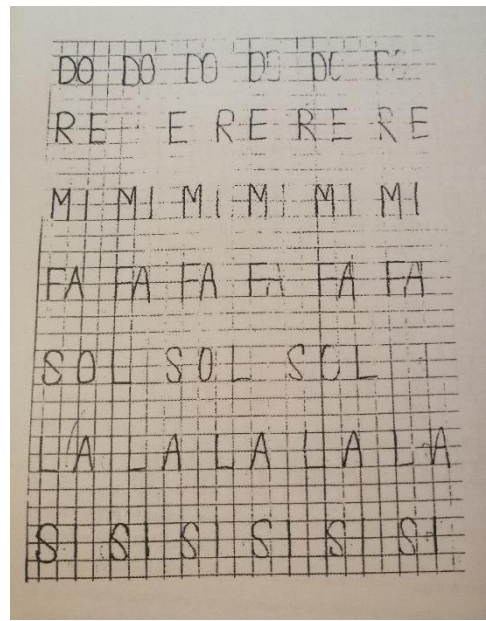 DO DO DO DO DO
RE E RE RE RE
MI MI MI MI MI MI
FA FA FA FA FA FA
SOL SOL SOL
LA LA LA LA LA
SI SI SI SI SI SI